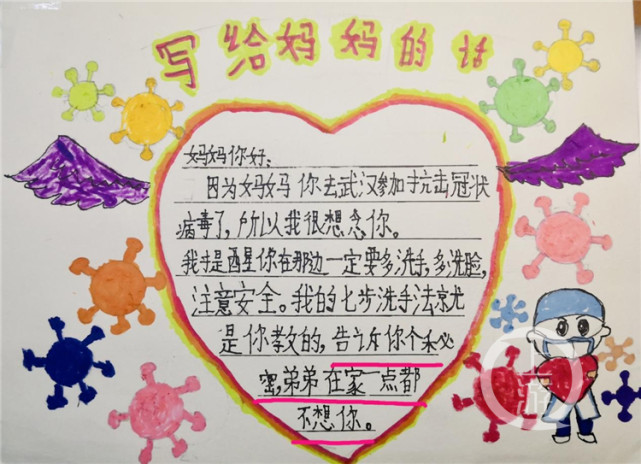 写给妈妈的话
妈妈你好:
因为妈妈你去武汉参加抗击冠状
病毒了,所以我很想念你。
我提醒你在那边一定要多洗手,多洗脸,
注意安全。我的七步洗手法就
是你教的,告诉你个秘
密,弟弟在家一点都
不想你。